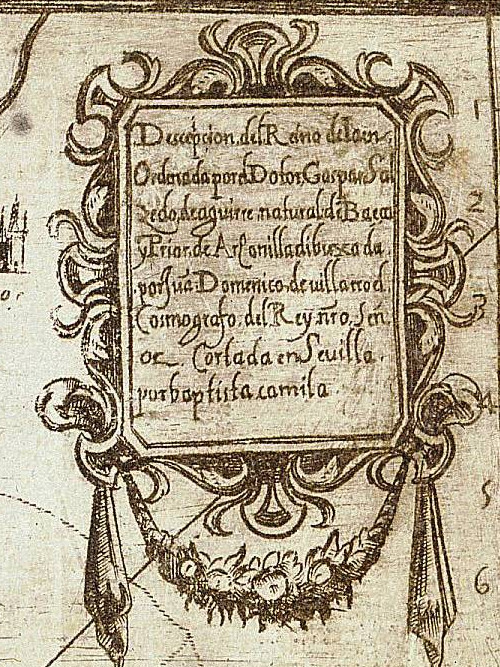 Descrpcion.del.Reino de Iaen.
Ordenada por el Dotor Gaspar Sal
zedo, de aguirre, natural, de Baeca
y Prior, de Arionilla dibuxada
por Iuã Domenico.de villarroel
Cosmografo, del Rey nro, Señ
or Cortada en Sevilla.
por baptista camila.
or
1
2
3
4
5
6